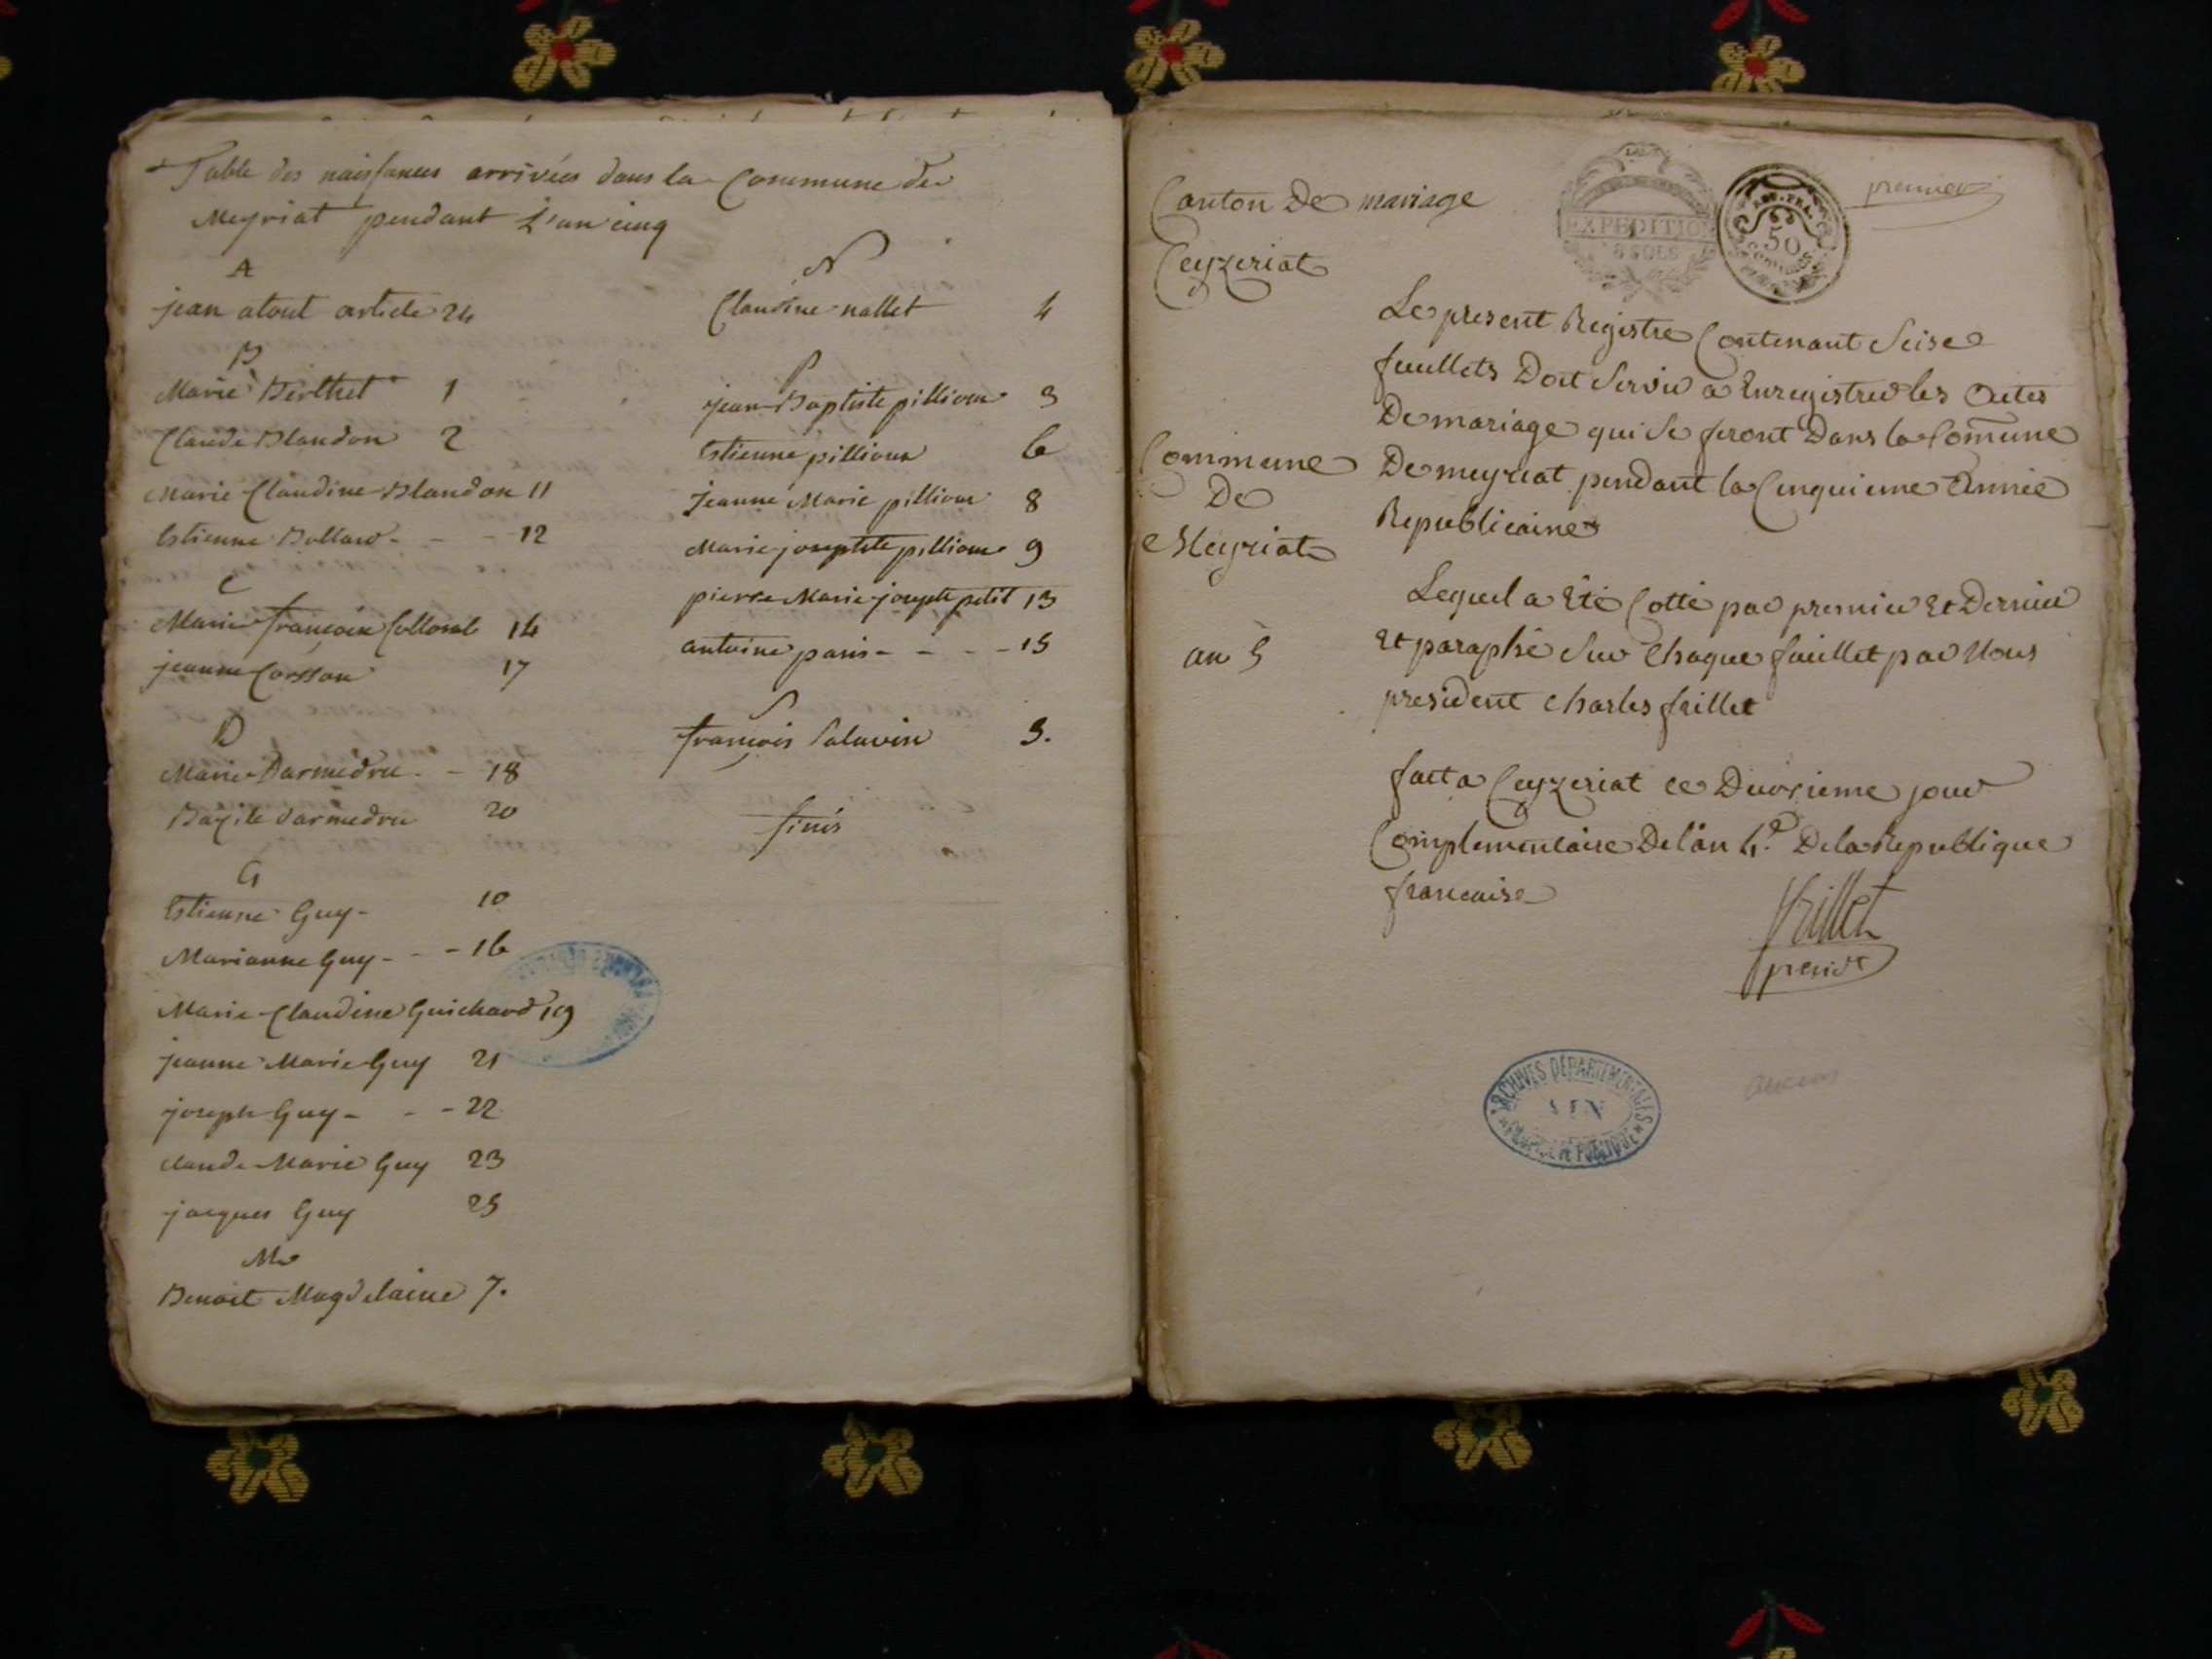 Table des naissances arrivées dans la Commune de
Meyriat pendant L'an cinq
A
jean atout article 24
B
Marie Berthet 1
Claude Blandon 2
Marie Claudine Blandon 11
Estienne Bollard - - - 12
C
Marie françoise 14
jeanne 17
D
Marie Darmedru - - 18
Bazile darmedru 20
G
Estienne Guy - 10
Marianne Guy - - - 16
Marie Claudine Guichard 19
jeanne Marie Guy 21
joseph Guy - - - 22
claude Marie Guy 23
jacques Guy 25
M
Benoit Magdelaine 7.
N
Claudine nallet 4
P
jean Baptiste pillioux 3
Estienne pillioux 6
Jeanne Marie pillioux 8
Marie josephte pillioux 9
pierre Marie joseph petit 13
antoine paris - - - - 15
S
françois Salavin 5.
finis
premier
Canton De mariage
Ceyzeriat
EXPEDITION
8 SOLS
50
CENTIMES
Le present Registre Contenant Seise
feuillets Doit Servir a Enregistrer les Actes
De mariage qui Se feront Dans la Comune
De meyriat pendant la Cinquieme Année
Republicaine
Commune
De
Meyriat
an 5
Lequel a Eté Cotté par premier Et Dernier
Et paraphé Sur Chaque feuillet par Nous
president Charles frillet
fait a Ceyzeriat ce Deuxieme jour
Complementaire De l'an 4.e De la Republique
francaise
frillet
presidt
ARCHIVES DEPARTEMENTALES
AIN